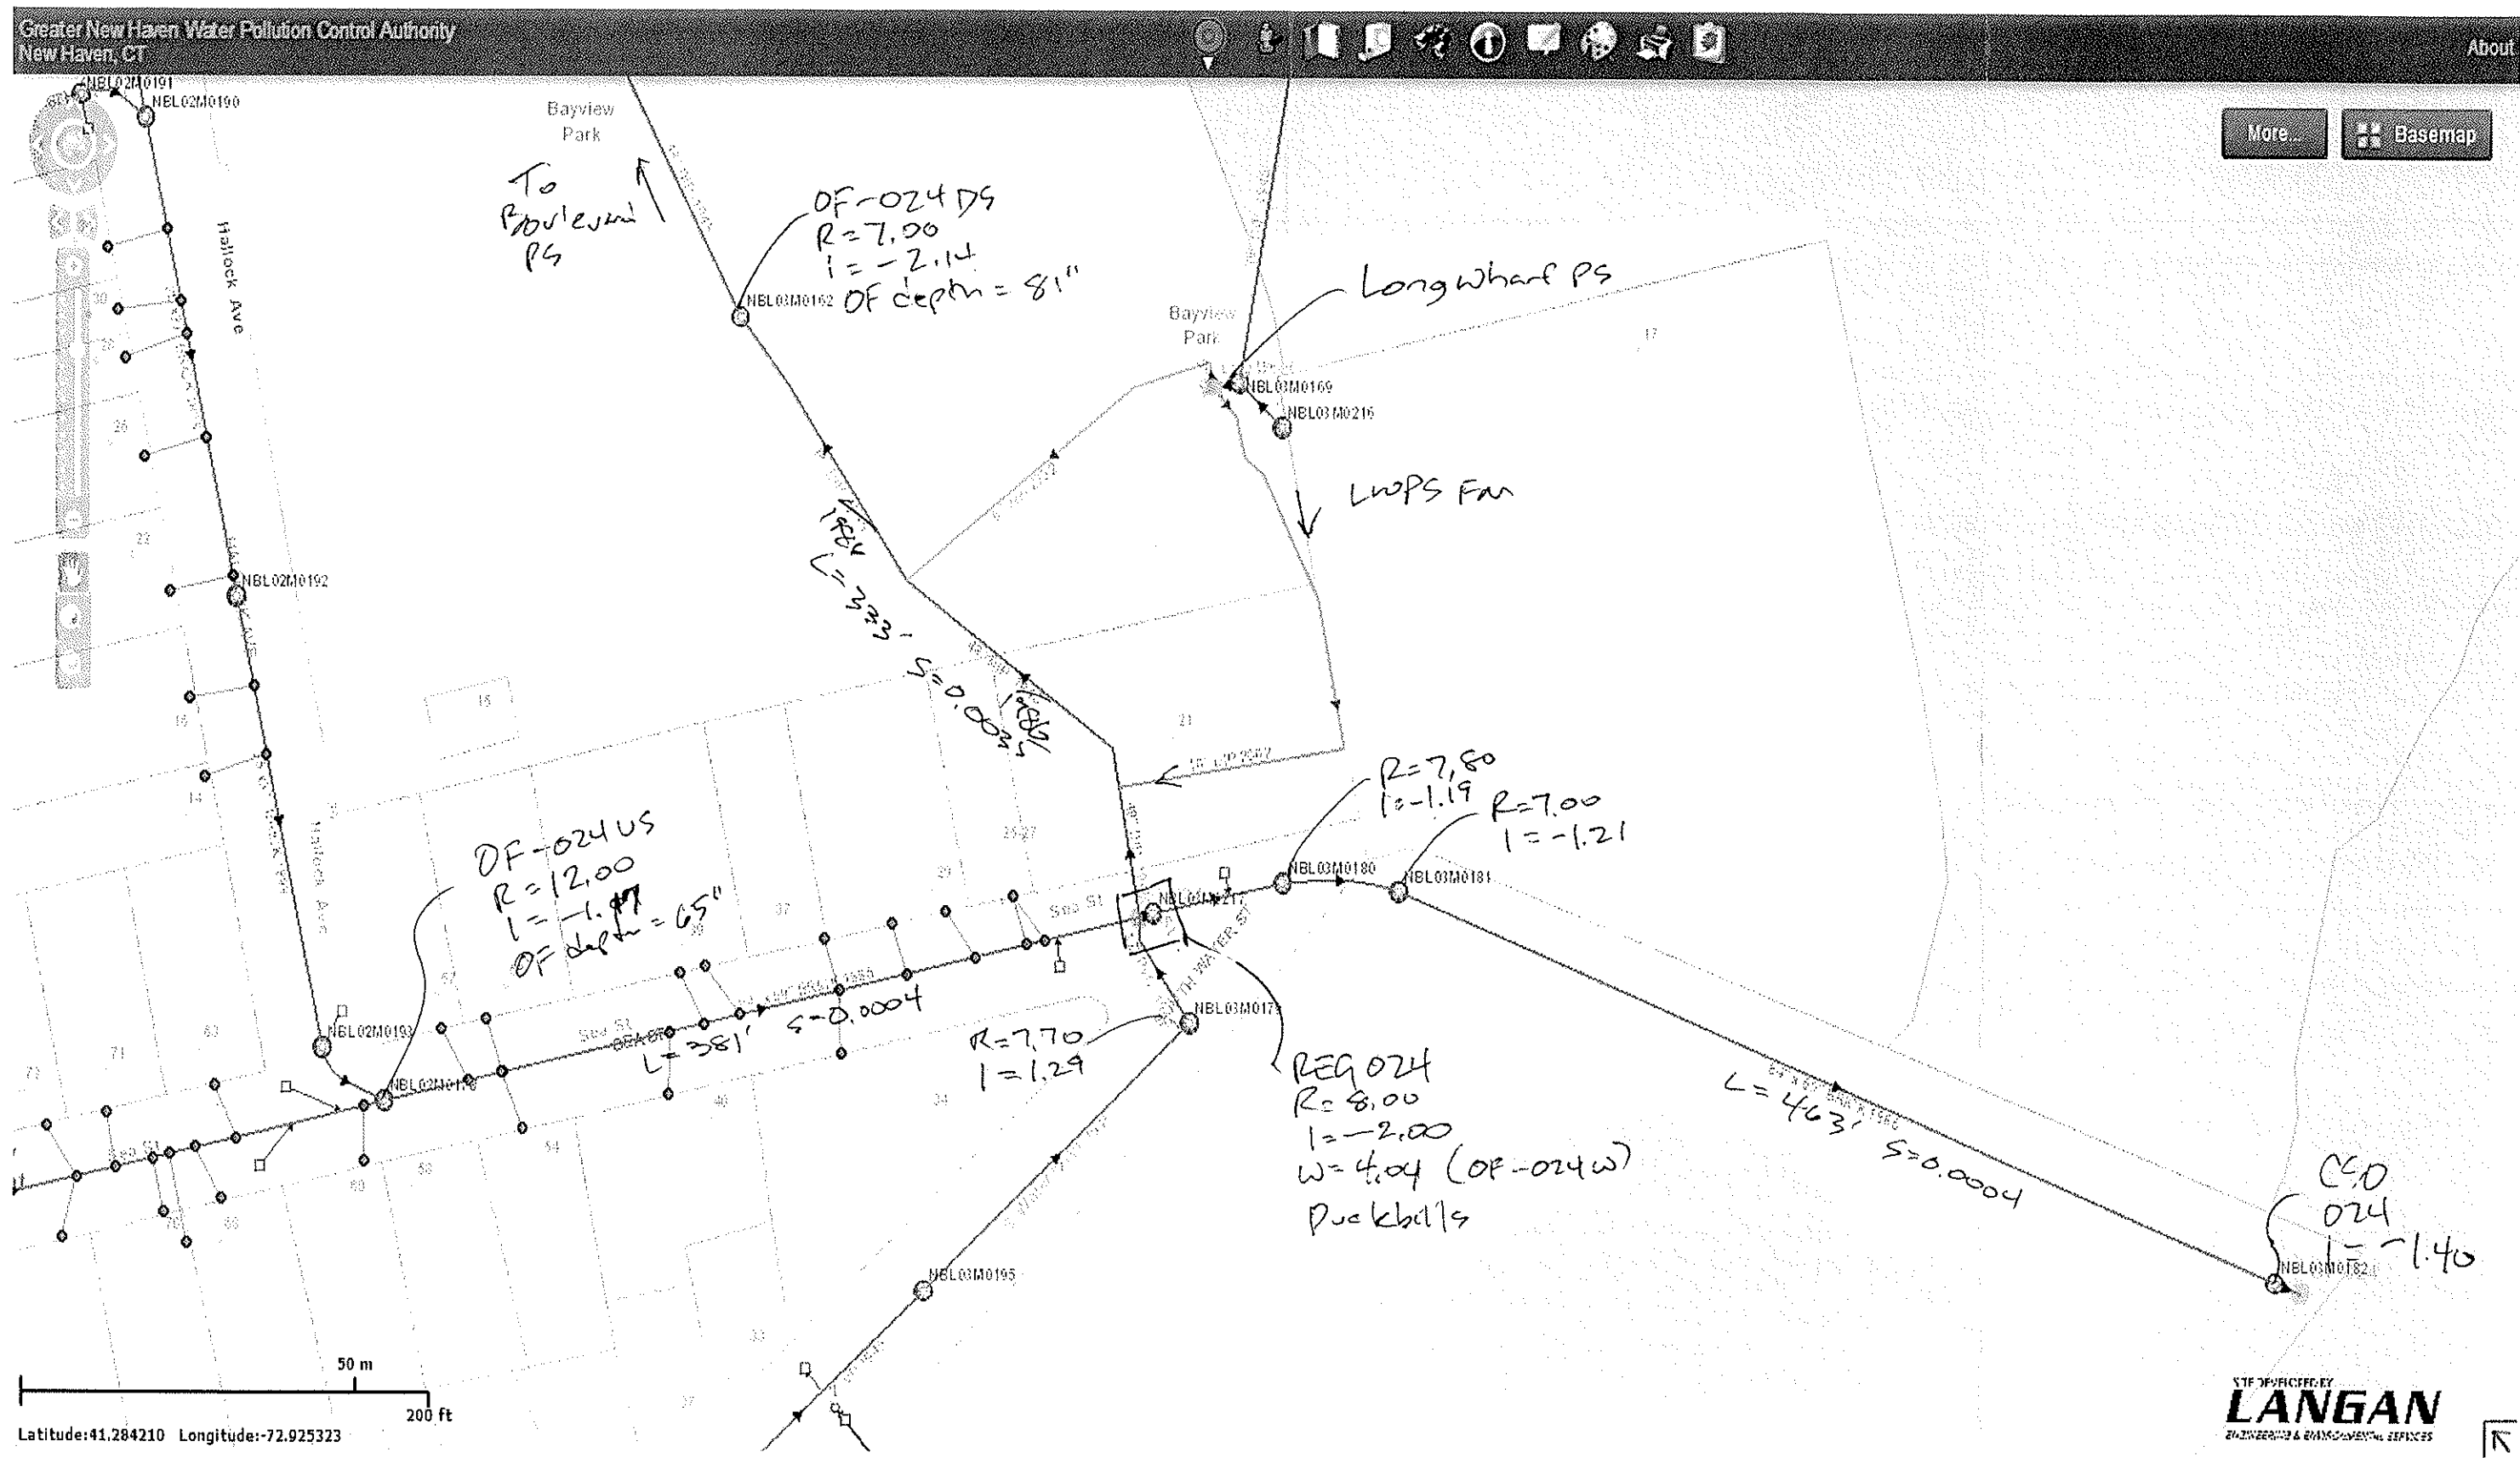 Greater New Haven Water Pollution Control Authority
New Haven, CT
About
More...
Basemap
NBL02M0191
NBL02M0190
Bayview
Park
To
Boulevard
PS
OF-024 DS
R=7.00
I=-2.14
OF depth = 81"
NBL03M0162
Hallock Ave
Long Wharf PS
Bayview
Park
17
NBL03M0169
NBL03M0216
30
28
26
22
LWPS FM
NBL02M0192
L=333'
S=0.0033
16
14
18
21
R=7.80
I=-1.19
R=7.00
I=-1.21
OF-024 US
R=12.00
OF depth = 65"
Hallock Ave
25-27
29
37
Sea St
NBL03M0180
NBL03M0181
NBL03M0217
SOUTH WATER ST
NBL02M0193
63
71
Sea St
L=381'
S=0.0004
R=7.70
I=1.29
NBL02M0178
34
40
54
58
60
66
70
Sea St
REG 024
R=8.00
I=-2.00
W=4.04 (OF-024W)
Duckbills
L=463'
S=0.0004
CSO
024
I=-1.40
NBL03M0182
NBL03M0195
33
37
50 m
200 ft
Latitude:41.284210 Longitude:-72.925323
SITE DEVELOPED BY
LANGAN
ENGINEERING & ENVIRONMENTAL SERVICES